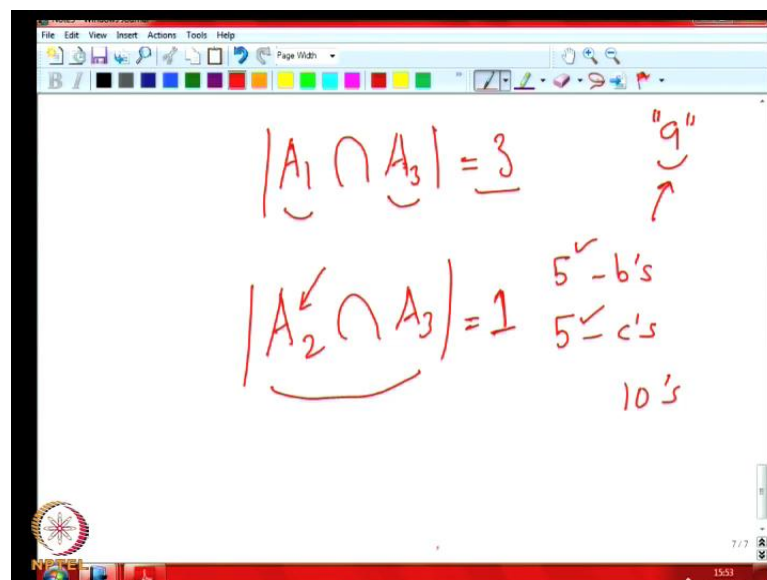 File Edit View Insert Actions Tools Help
Page Width
B I
|A₁ ∩ A₃| = 3
"a"
|A₂ ∩ A₃| = 1
5 ✓ - b's
5 ✓ - c's
10's
7/7
NPTEL
15:53